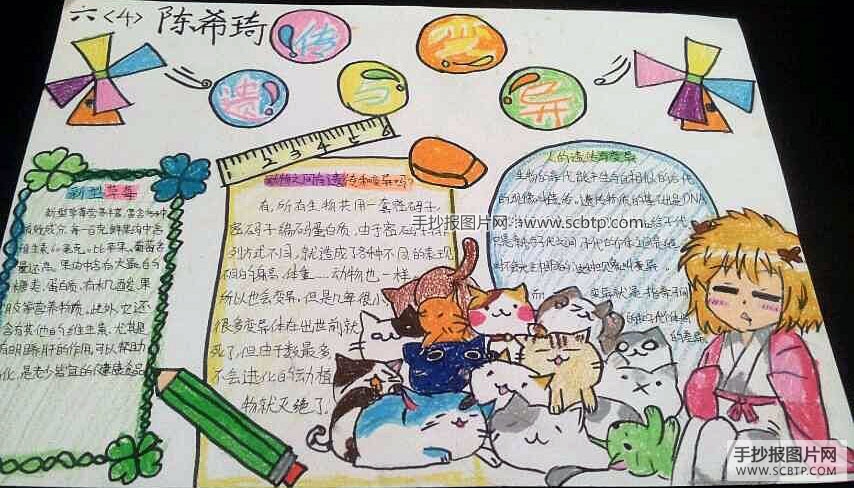 六<4> 陈希琦
遗传与变异
1 2 3 4 5 6
新型草莓
新型草莓营养丰富,富含多种
有效成分,每一百克鲜果肉中含
维生素 毫克,比苹果、葡萄含
量还高。果肉中含有大量
糖类、蛋白质、有机酸、果
胶等营养物质。此外,它还
含有其他多种维生素,尤其是
有明目养肝的作用,可以帮助
化,是老少皆宜的健康食品
动物之间有遗传和变异吗?
在所有生物共用一套密码子,
密码子编码蛋白质,由于密码子
列方式不同,就造成了各种不同的表现
不同的身高、体重……动物也一样。
所以也会变异,但是几率很小
很多变异体在出世前就
死了,但由于数最多
不会进化的动植
物就灭绝了。
人的遗传与变异
生物的亲代能产生与自己相似的后代
的现象叫遗传。遗传物质的基础是DNA
给子代
只是亲子代之间 子代的个体之间
变异
变异就是指亲子间
手抄报图片网
www.scbtp.com
手抄报图片网
WWW.SCBTP.COM